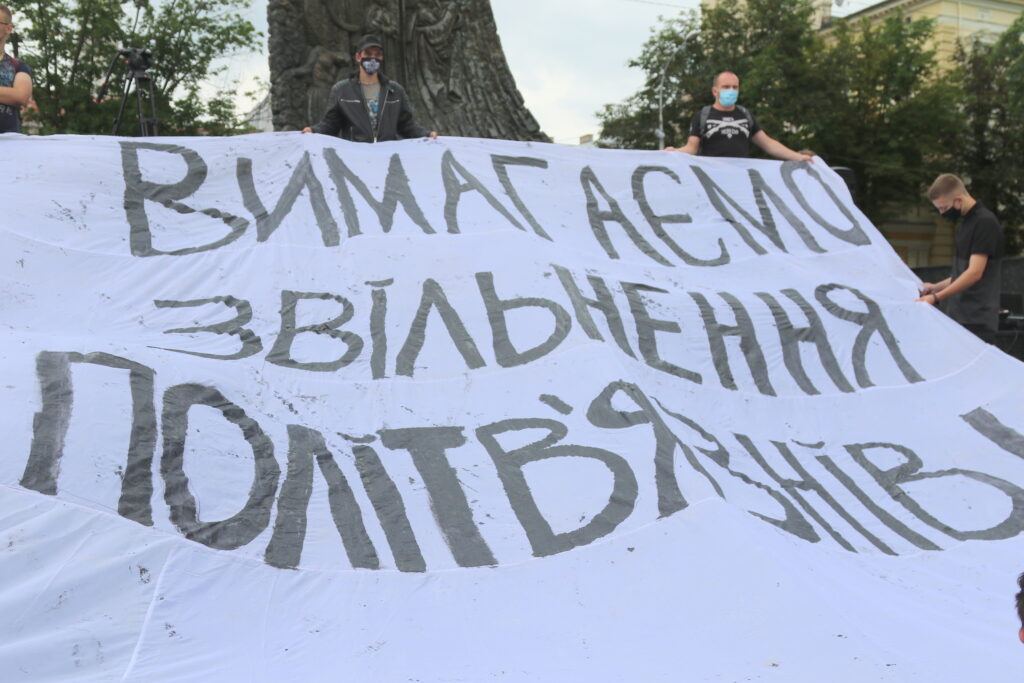 ВИМАГАЄМО
ЗВІЛЬНЕННЯ
ПОЛІТВ'ЯЗНІВ!